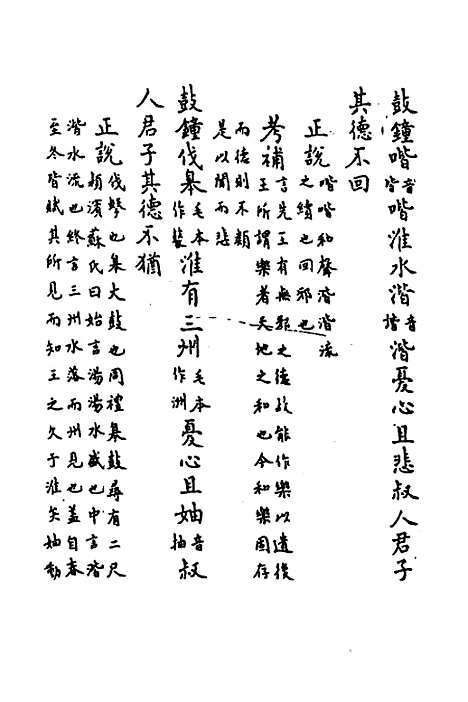 鼓鐘喈音皆喈淮水湝音諧湝憂心且悲叔人君子
其德不回
正說喈喈和聲湝湝流之績也回邪也
考補言先王有無邪之德故能作樂以遺後王所謂樂者天地之和也今和樂固存
而德則不類是以聞而悲
鼓鐘伐皋毛本作鼛淮有三州毛本作洲憂心且妯音抽叔
人君子其德不猶
正說伐擊也皋大鼓也周禮皋鼓尋有二尺穎濱蘇氏曰始言湯湯水盛也中言湝
湝水流也終言三州水落而州見也蓋自春至冬皆賦其所見而知王之久于淮矣妯動